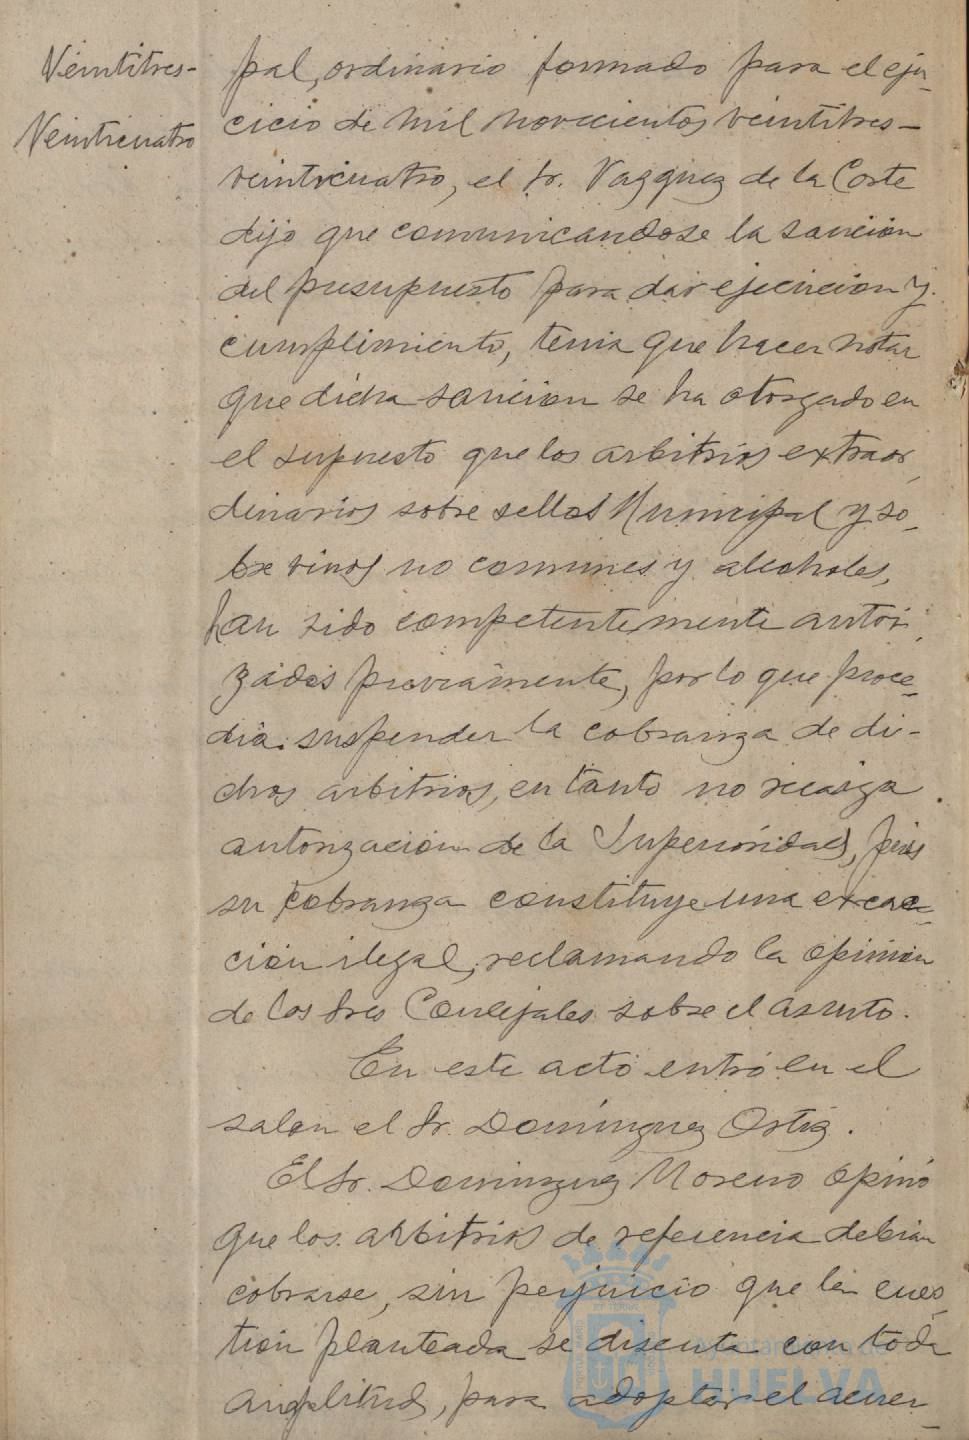 Veintitres-
Veinticuatro
pal, ordinario formado para el eje-
cicio de mil novecientos veintitres-
veinticuatro, el Sr. Vazquez de la Corte
dijo que comunicandose la sancion
del presupuesto para dar ejecucion y
cumplimiento, tenia que hacer notar
que dicha sancion se ha otorgado en
el supuesto que los arbitrios extraor-
dinarios sobre sellos Municipal y so-
bre vinos no comunes y alcoholes,
han sido competentemente autori-
zados previamente, por lo que proce-
dia suspender la cobranza de di-
chos arbitrios, en tanto no recaiga
autorizacion de la Superioridad, pues
su cobranza constituye una exac-
ción ilegal, reclamando la opinion
de los Sres Concejales sobre el asunto.
En este acto entró en el
salon el Sr. Dominguez Ortiz.
El Sr. Dominguez Moreno opinó
que los arbitrios de referencia debian
cobrarse, sin perjuicio que la cues-
tion planteada se discuta con toda
amplitud, para adoptar el acuer-
Ayuntamiento de
HUELVA